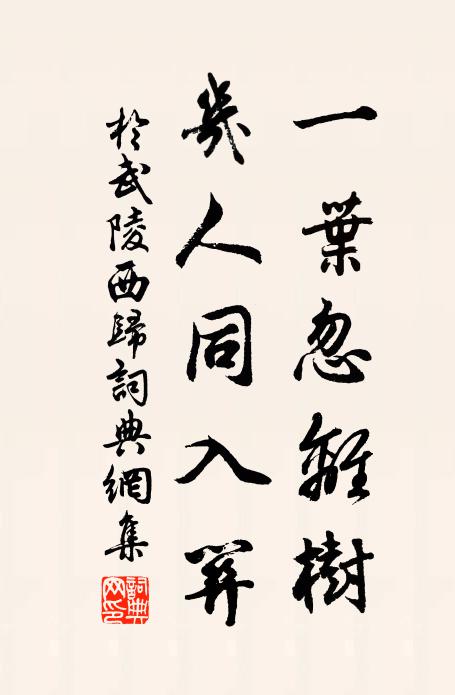 一葉忽離樹
幾人同入關
於武陵西歸詞典網集
詞典网印